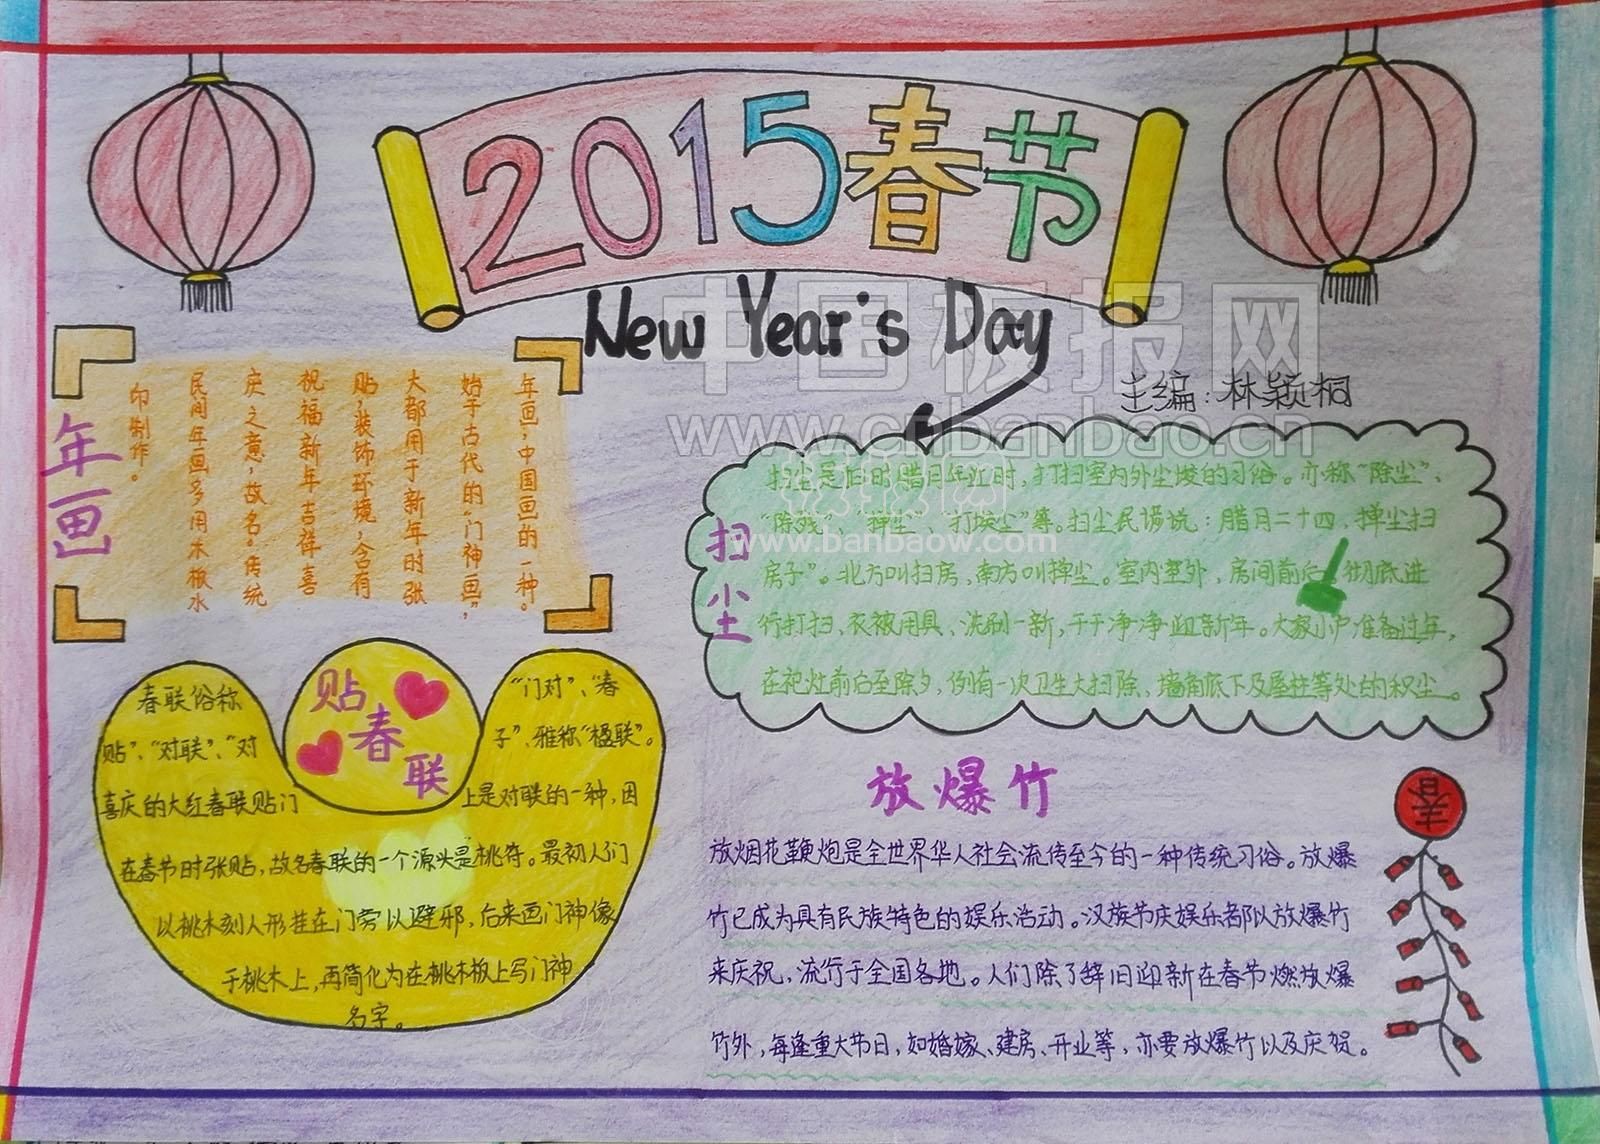 2015春节
New Year's Day
主编：林颖桐
中国板报网
www.cnbanbao.cn
年画
年画，中国画的一种。
始于古代的“门神画”，
大都用于新年时张
贴，装饰环境，含有
祝福新年吉祥喜
庆之意，故名。传统
民间年画多用木板水
印制作。
扫尘
扫尘是旧时腊月年近时，打扫室内外尘垢的习俗。亦称“除尘”、
“除残”、“掸尘”、“打埃尘”等。扫尘民谚说：腊月二十四，掸尘扫
房子”。北方叫扫房，南方叫掸尘。室内室外，房间前后 彻底进
行打扫、衣被用具、洗刷一新，干干净净迎新年。大家小户准备过年，
在祀灶前后至除夕，例有一次卫生大扫除、墙角底下及屋柱等处的积尘。
www.banbaow.com
贴春联
春联俗称“门对”、“春
贴”、“对联”、“对子”、雅称“楹联”。
喜庆的大红春联贴门上是对联的一种，因
在春节时张贴，故名春联的一个源头是桃符。最初人们
以桃木刻人形挂在门旁以避邪，后来画门神像
于桃木上，再简化为在桃木板上写门神
名字。
放爆竹
放烟花鞭炮是全世界华人社会流传至今的一种传统习俗。放爆
竹已成为具有民族特色的娱乐活动。汉族节庆娱乐都以放爆竹
来庆祝，流行于全国各地。人们除了辞旧迎新在春节燃放爆
竹外，每逢重大节日，如婚嫁、建房、开业等，亦要放爆竹以及庆贺。
春